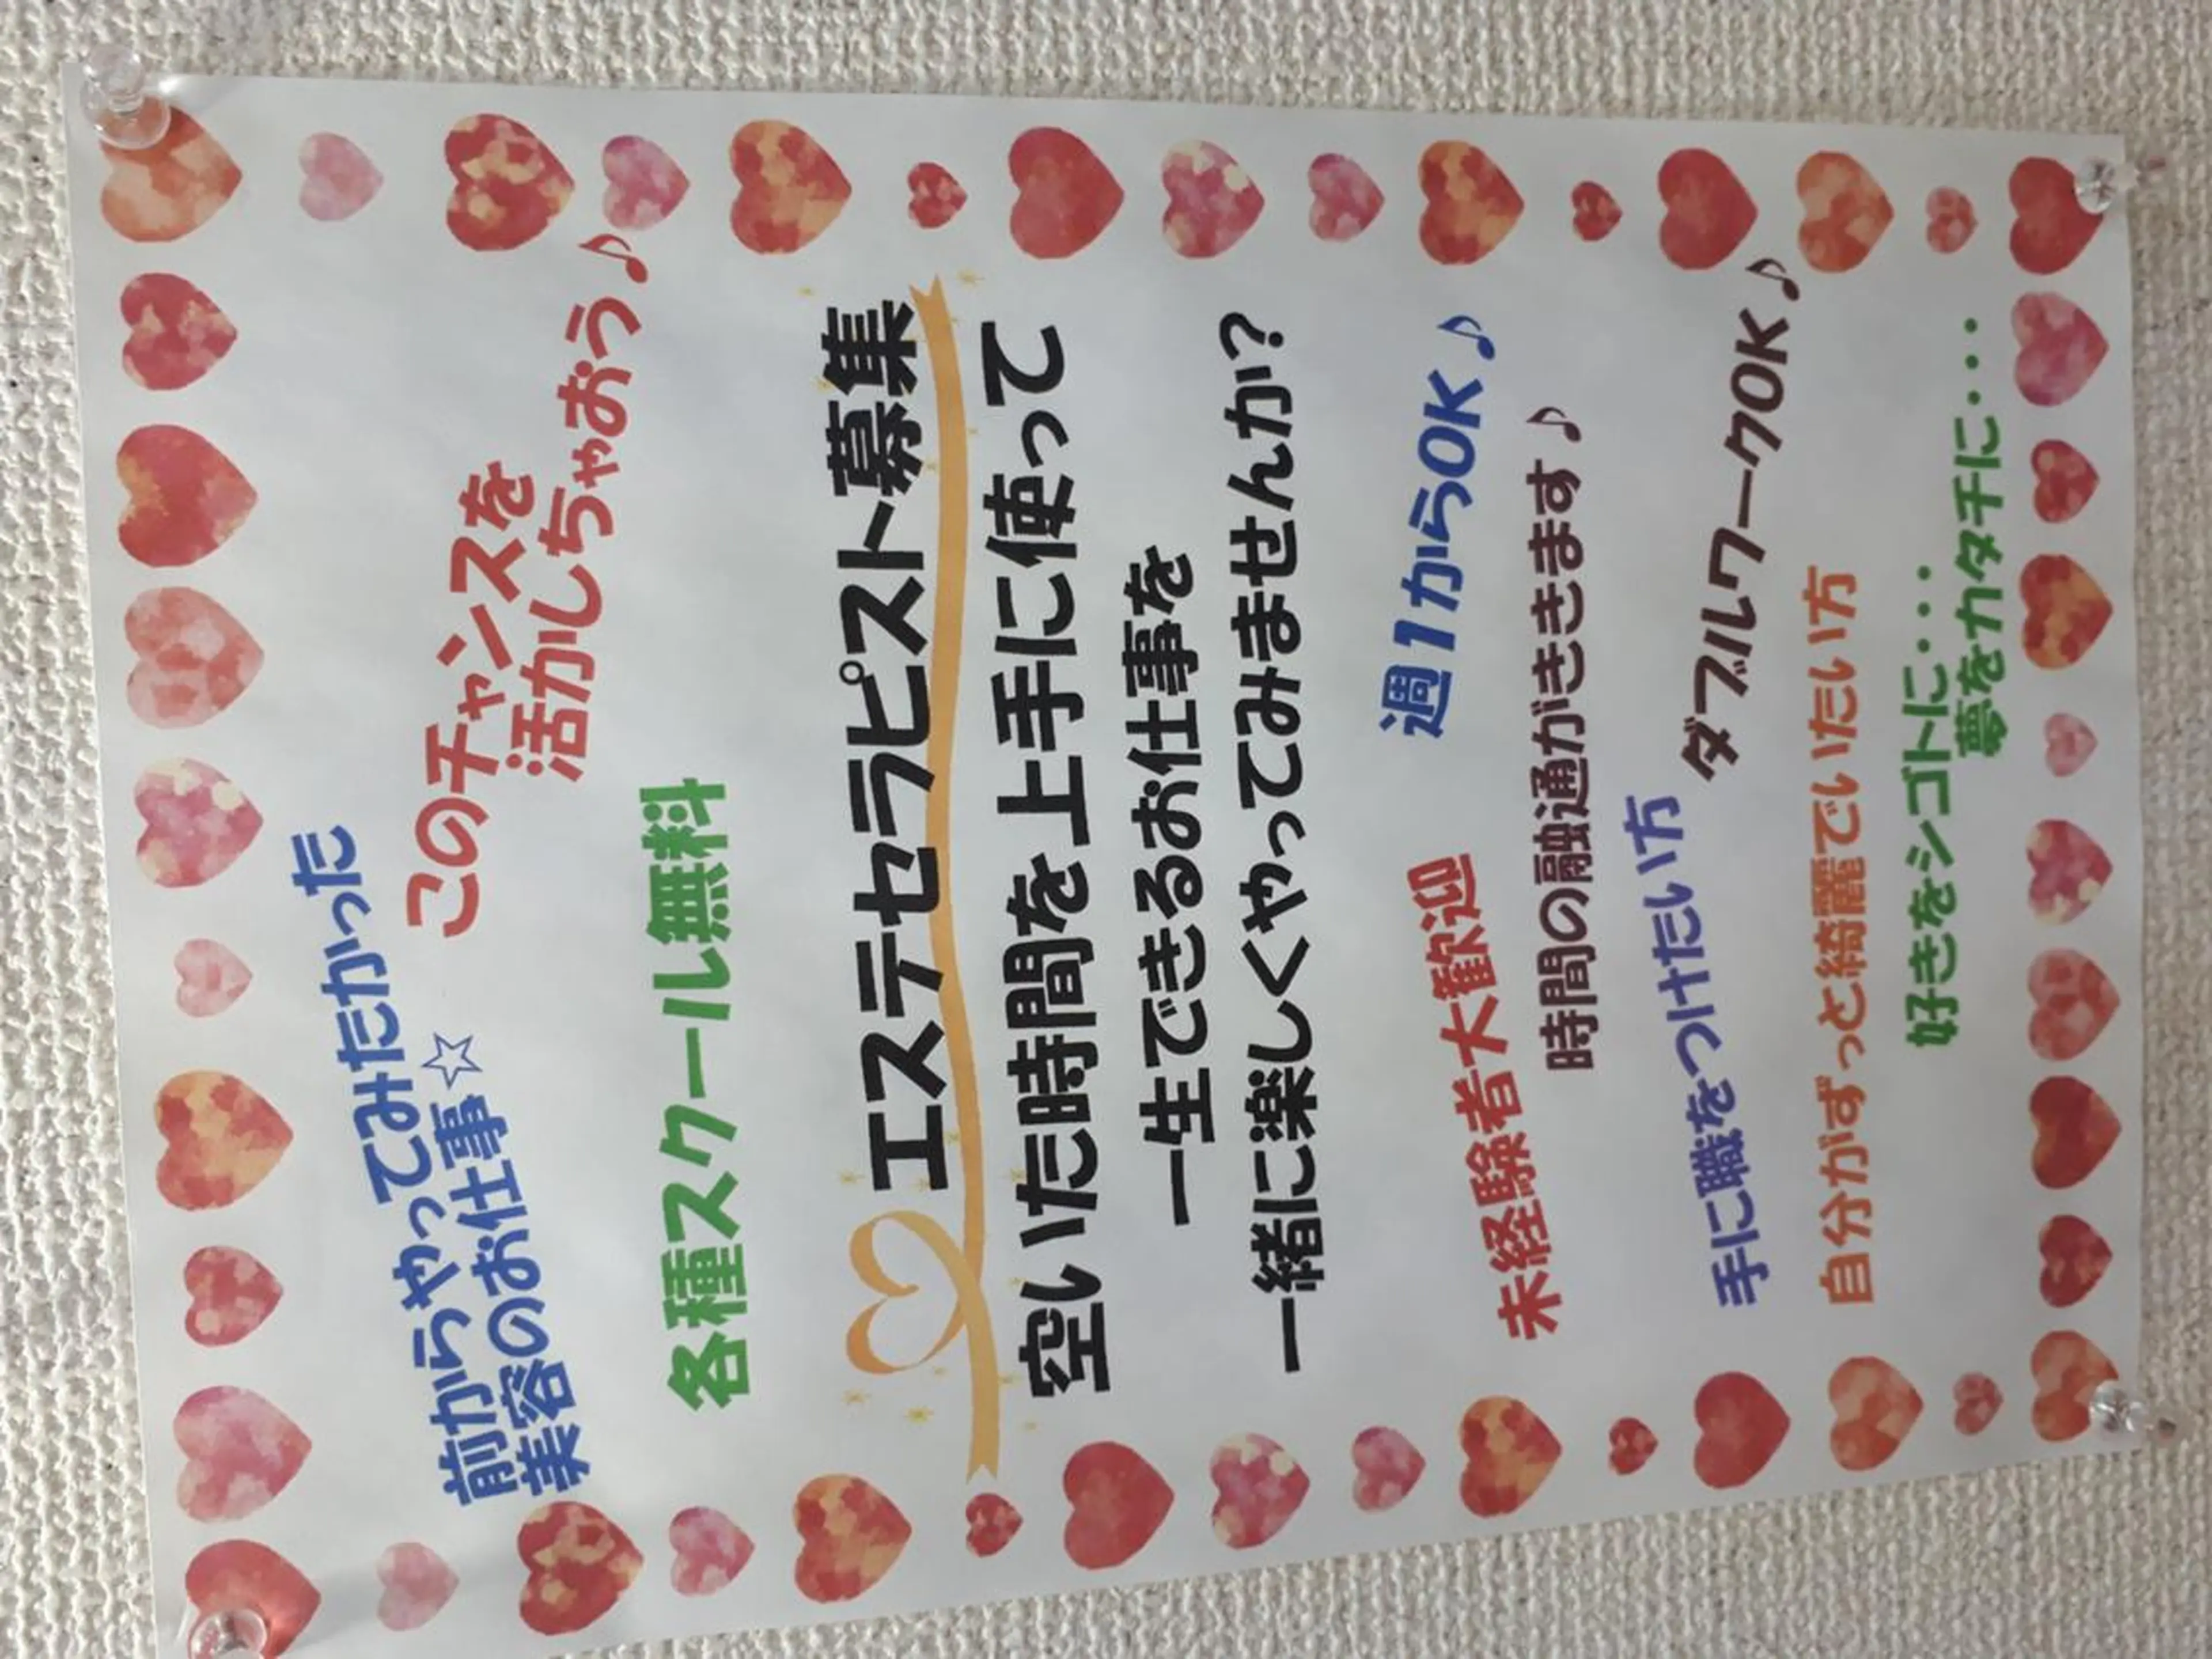 前からやってみたかった
美容のお仕事☆
このチャンスを
活かしちゃおう♪
各種スクール無料
エステセラピスト募集
空いた時間を上手に使って
一生できるお仕事を
一緒に楽しくやってみませんか?
未経験者大歓迎
週1からOK♪
時間の融通がききます♪
手に職をつけたい方
ダブルワークOK♪
自分がずっと綺麗でいたい方
好きをシゴトに・・・
夢をカタチに・・・